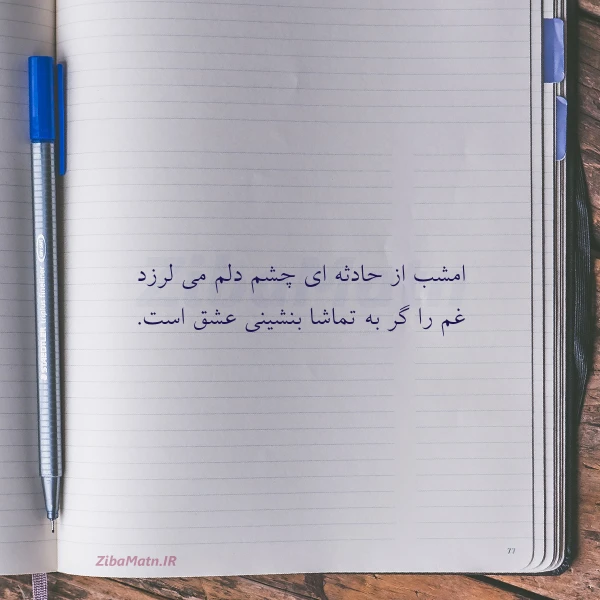 امشب از حادثه ای چشم دلم می لرزد
غم را گر به تماشا بنشینی عشق است.
STAEDTLER triplus fineliner
77
ZibaMatn.IR